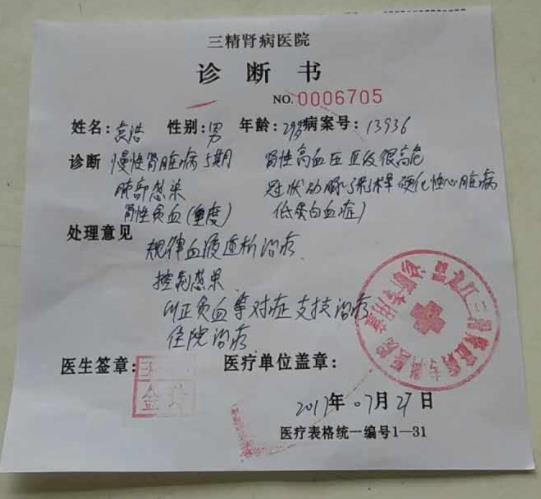 三精肾病医院
诊断书
NO.0006705
姓名:袁浩 性别:男 年龄:29岁 病案号:13936
诊断 慢性肾脏病5期 肾性高血压Ⅲ级很高危
肺部感染 冠状动脉粥样硬化性心脏病
肾性贫血(重度) 低蛋白血症
处理意见
规律血液透析治疗
控制感染
纠正贫血等对症支持治疗
住院治疗
医生签章: 医疗单位盖章:
2017年07月27日
医疗表格统一编号1—31